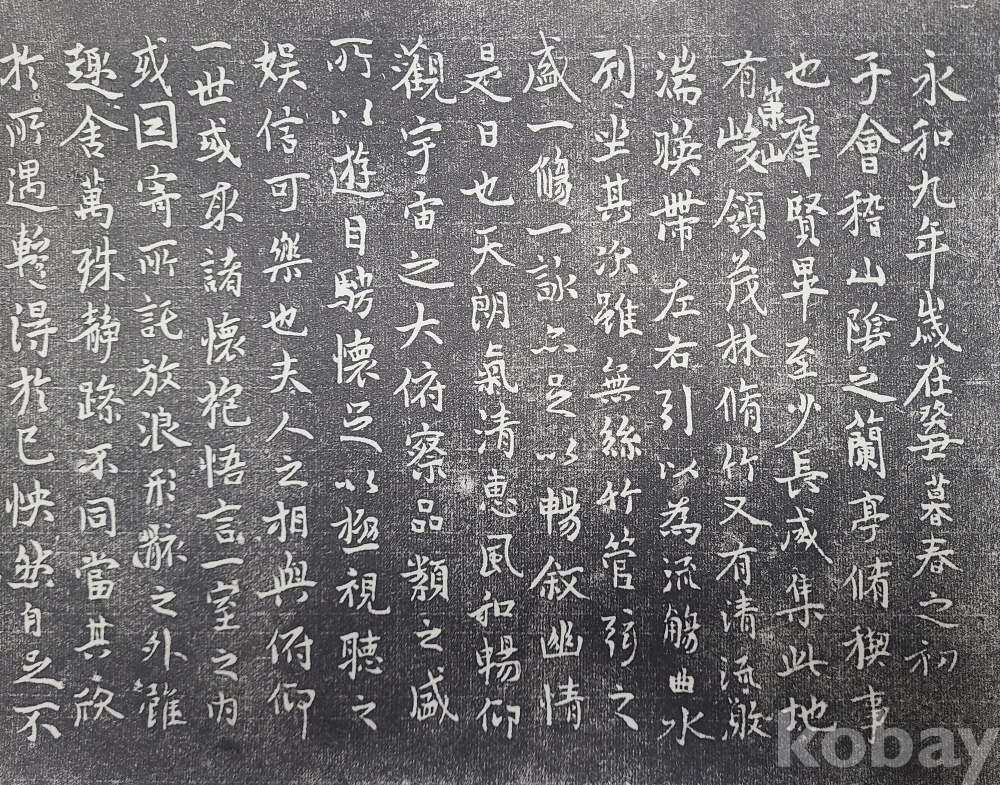 永和九年歲在癸丑暮春之初
于會稽山陰之蘭亭脩稧事
也羣賢畢至少長咸集此地
有崇山峻領茂林脩竹又有清流激
湍暎帶左右引以為流觴曲水
列坐其次雖無絲竹管弦之
盛一觴一詠亦足以暢敘幽情
是日也天朗氣清惠風和暢仰
觀宇宙之大俯察品類之盛
所以遊目騁懷足以極視聽之
娛信可樂也夫人之相與俯仰
一世或取諸懷抱悟言一室之內
或因寄所託放浪形骸之外雖
趣舍萬殊靜躁不同當其欣
於所遇暫得於己怏然自足不
kobay